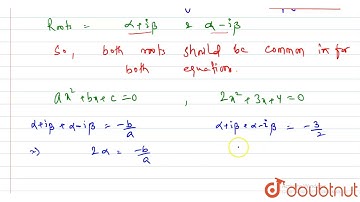 Roots = α+iβ & α-iβ
So, both roots should be common in for
both equation.
ax²+bx+c=0 , 2x²+3x+4=0
α+iβ+α-iβ = -b/a α+iβ+α-iβ = -3/2
⇒) 2α = -b/a
doubtnut